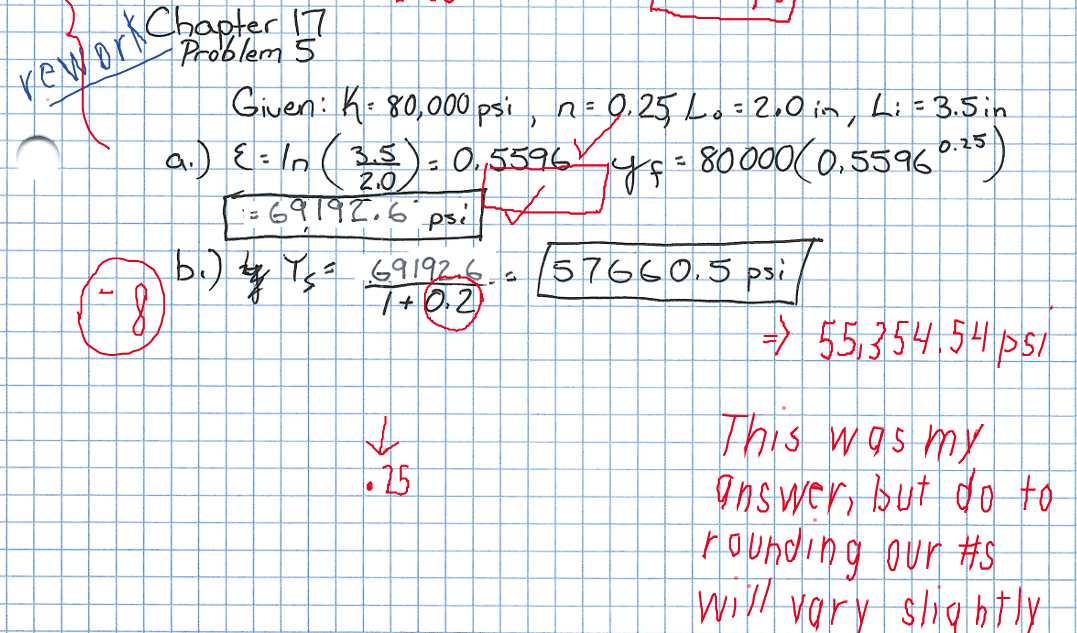 rework
Chapter 17
Problem 5
Given: K = 80,000 psi, n = 0.25, L₀ = 2.0 in, Li = 3.5 in
a.) ε = ln (3.5/2.0) = 0.5596 yf = 80000(0.5596^0.25)
= 69192.6 psi
b.) Ys = 69192.6/(1 + 0.2) = 57660.5 psi
-8
=> 55,354.54 psi
↓
.25
This was my
answer, but do to
rounding our #s
will vary slightly